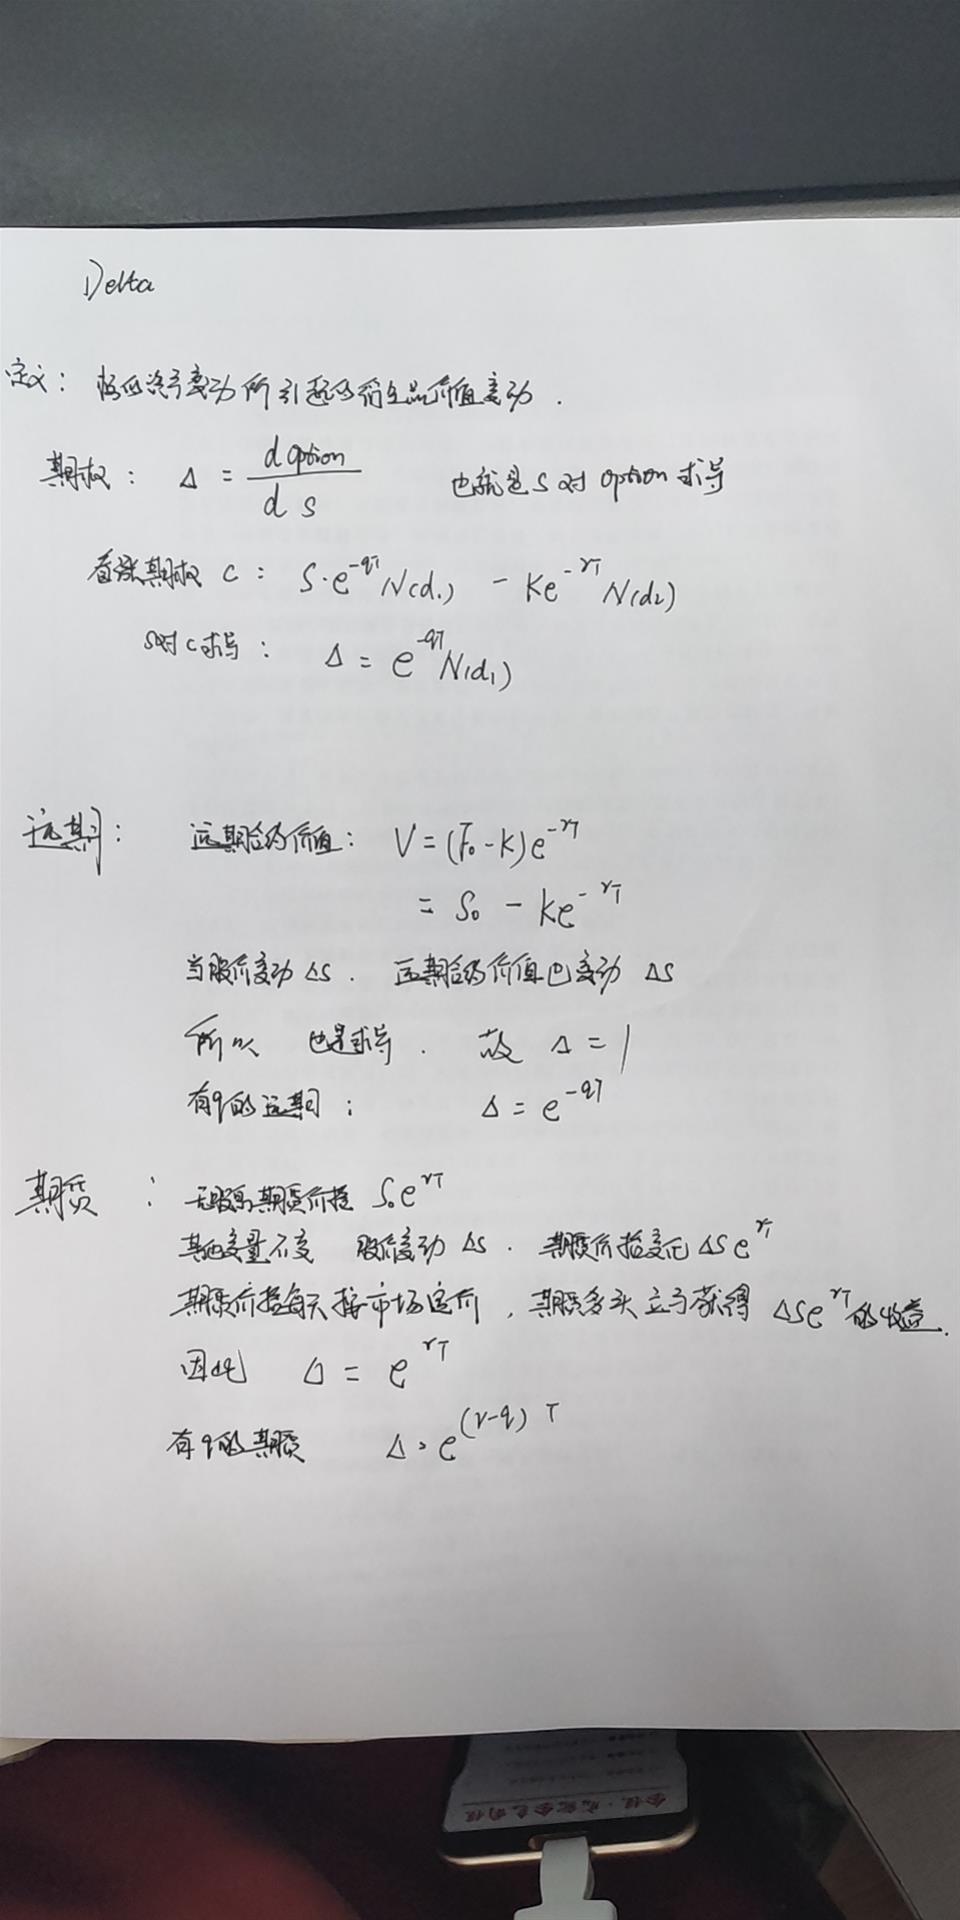 Delta
定义: 标的资产变动所引起的衍生品价值变动.
期权: Δ = d option / d S 也就是 S 对 option 求导
看涨期权 C: S·e^{-qT} N(d₁) - Ke^{-rT} N(d₂)
S对C求导: Δ = e^{-qT} N(d₁)
远期: 远期合约价值: V = (F₀ - K)e^{-rT}
= S₀ - Ke^{-rT}
当股价变动 ΔS. 远期合约价值也变动 ΔS
所以 也是求导. 故 Δ = 1
有q的远期: Δ = e^{-qT}
期货: 无股息期货价格 S₀e^{rT}
其他变量不变 股价变动 ΔS. 期货价格变化 ΔSe^{rT}
期货价格每天按市场定价, 期货多头立于获得 ΔSe^{rT} 的收益.
因此 Δ = e^{rT}
有q的期货 Δ = e^{(r-q)T}